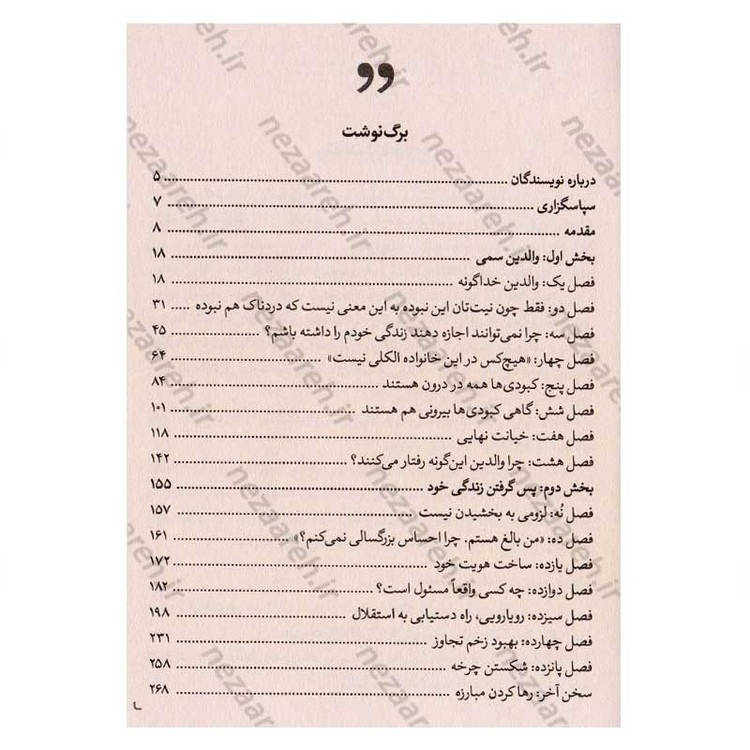 برگ‌نوشت
درباره نویسندگان ۵
سپاسگزاری ۷
مقدمه ۸
بخش اول: والدین سمی ۱۸
فصل یک: والدین خداگونه ۱۸
فصل دو: فقط چون نیت‌تان این نبوده به این معنی نیست که دردناک هم نبوده ۳۱
فصل سه: چرا نمی‌توانند اجازه دهند زندگی خودم را داشته باشم؟ ۴۵
فصل چهار: «هیچ‌کس در این خانواده الکلی نیست» ۶۴
فصل پنج: کبودی‌ها همه در درون هستند ۸۴
فصل شش: گاهی کبودی‌ها بیرونی هم هستند ۱۰۱
فصل هفت: خیانت نهایی ۱۱۸
فصل هشت: چرا والدین این‌گونه رفتار می‌کنند؟ ۱۴۲
بخش دوم: پس گرفتن زندگی خود ۱۵۵
فصل نُه: لزومی به بخشیدن نیست ۱۵۷
فصل ده: «من بالغ هستم. چرا احساس بزرگسالی نمی‌کنم؟» ۱۶۱
فصل یازده: ساخت هویت خود ۱۷۲
فصل دوازده: چه کسی واقعاً مسئول است؟ ۱۸۲
فصل سیزده: رویارویی، راه دستیابی به استقلال ۱۹۸
فصل چهارده: بهبود زخم تجاوز ۲۳۱
فصل پانزده: شکستن چرخه ۲۵۸
سخن آخر: رها کردن مبارزه ۲۶۸
nezaareh.ir